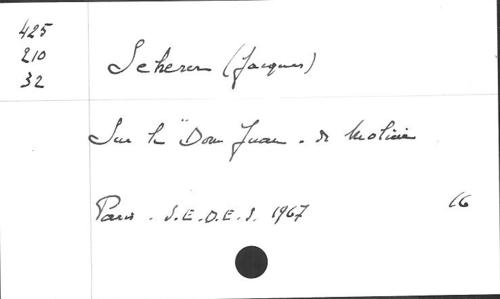 425
210
32
Scherer (Jacques)
Sur le "Dom Juan" de Molière
Paris. S.E.D.E.S. 1967
16